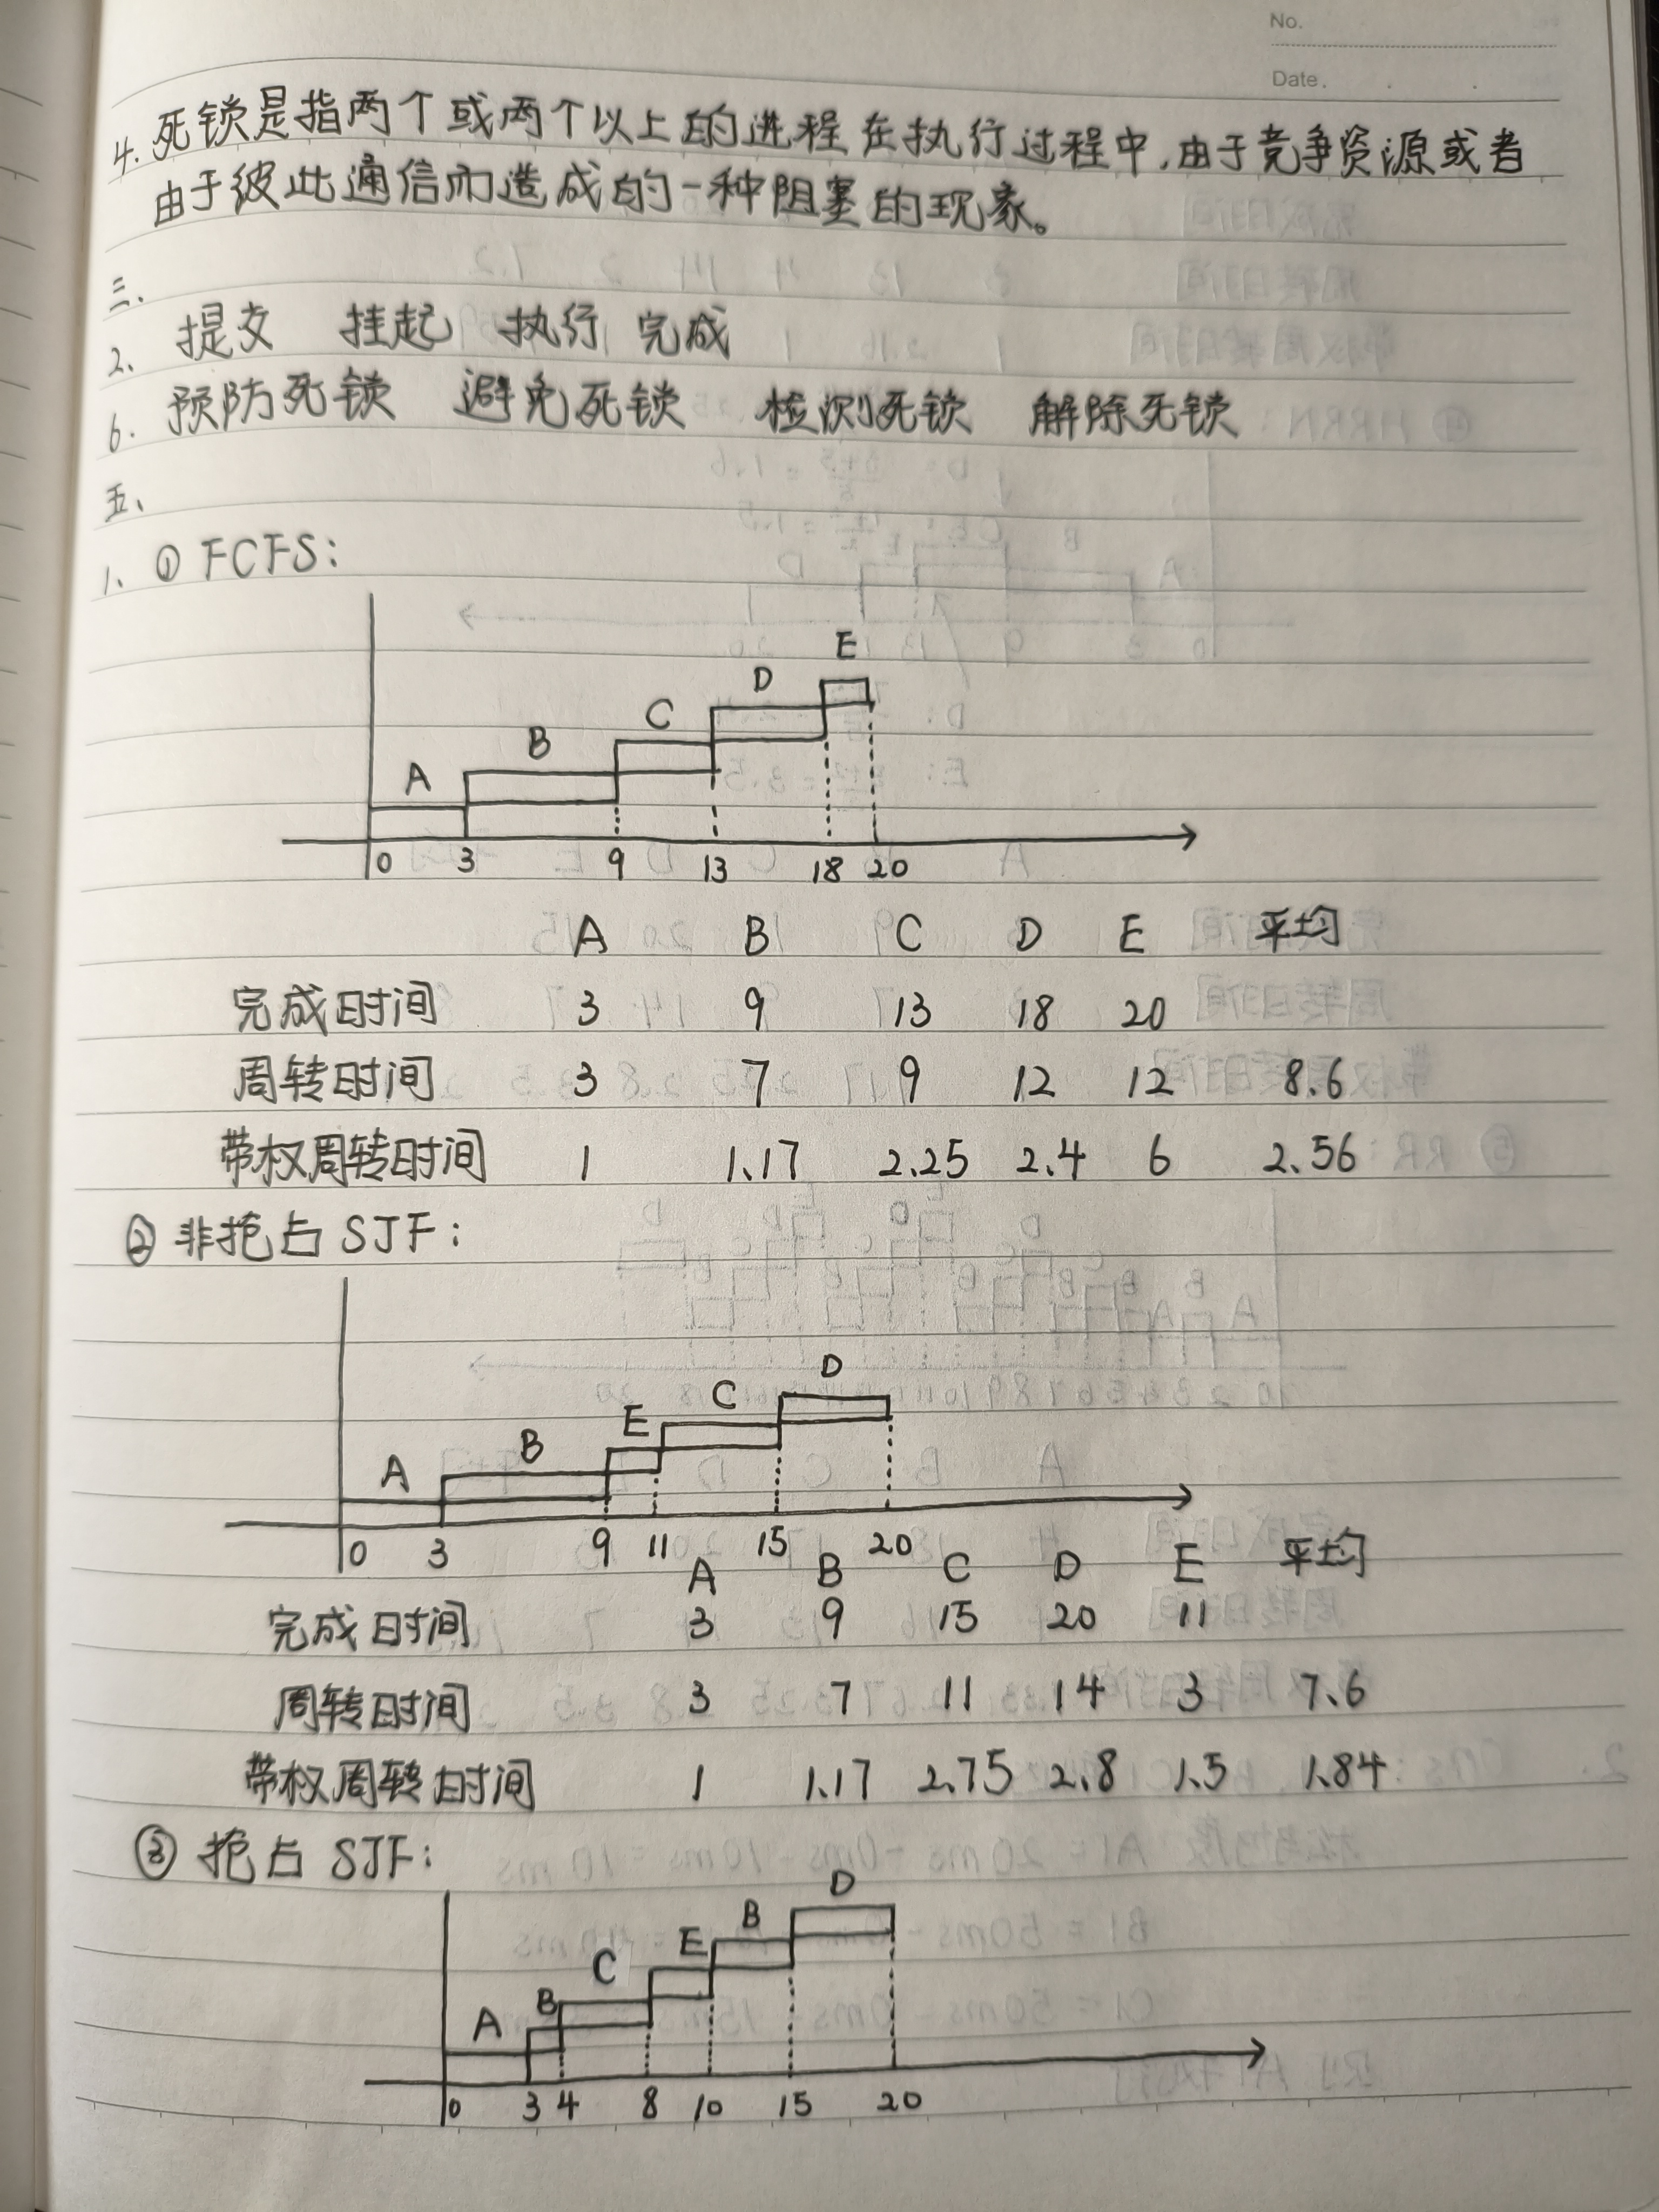 No.
Date.
4. 死锁是指两个或两个以上的进程在执行过程中,由于竞争资源或者
由于彼此通信而造成的一种阻塞的现象。
三、
2. 提交 挂起 执行 完成
6. 预防死锁 避免死锁 检测死锁 解除死锁
五、
1. ① FCFS:
A B C D E
0 3 9 13 18 20
A B C D E 平均
完成时间 3 9 13 18 20
周转时间 3 7 9 12 12 8.6
带权周转时间 1 1.17 2.25 2.4 6 2.56
② 非抢占SJF:
A B E C D
0 3 9 11 15 20
A B C D E 平均
完成时间 3 9 15 20 11
周转时间 3 7 11 14 3 7.6
带权周转时间 1 1.17 2.75 2.8 1.5 1.84
③ 抢占SJF:
A B C E B D
0 3 4 8 10 15 20